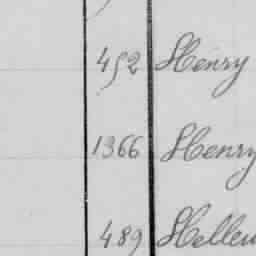 452 Henry
1366 Henry
489 Hellen